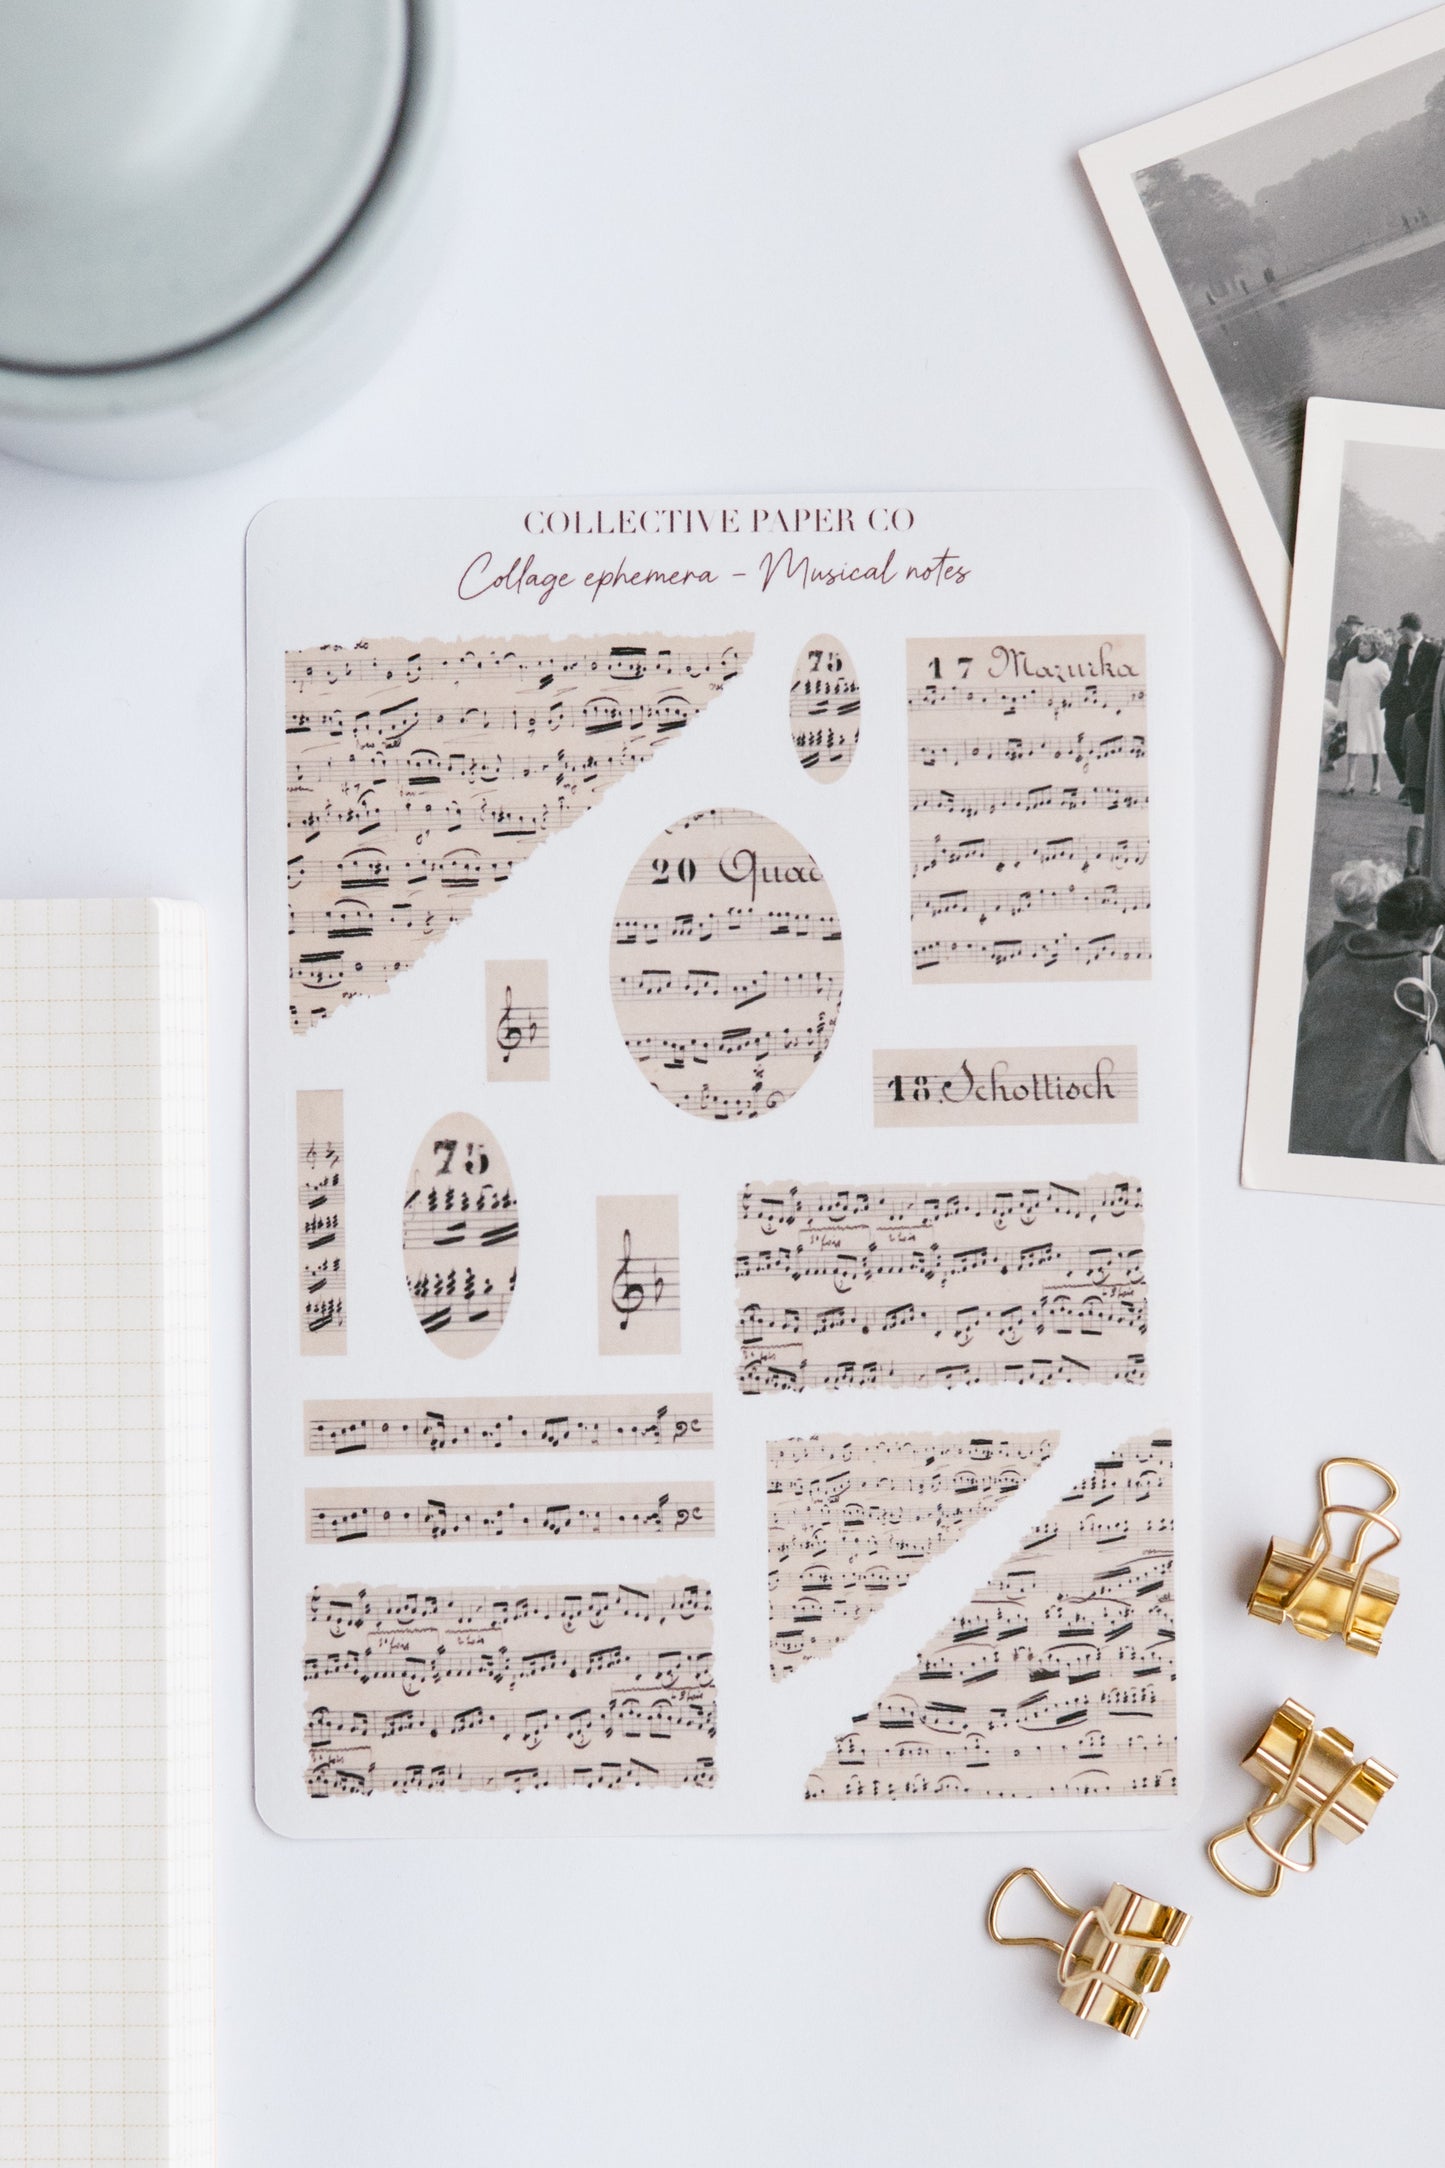 COLLECTIVE PAPER CO
Collage ephemera - Musical notes
75
17 Mazurka
20 Quad
18. Schottisch
75